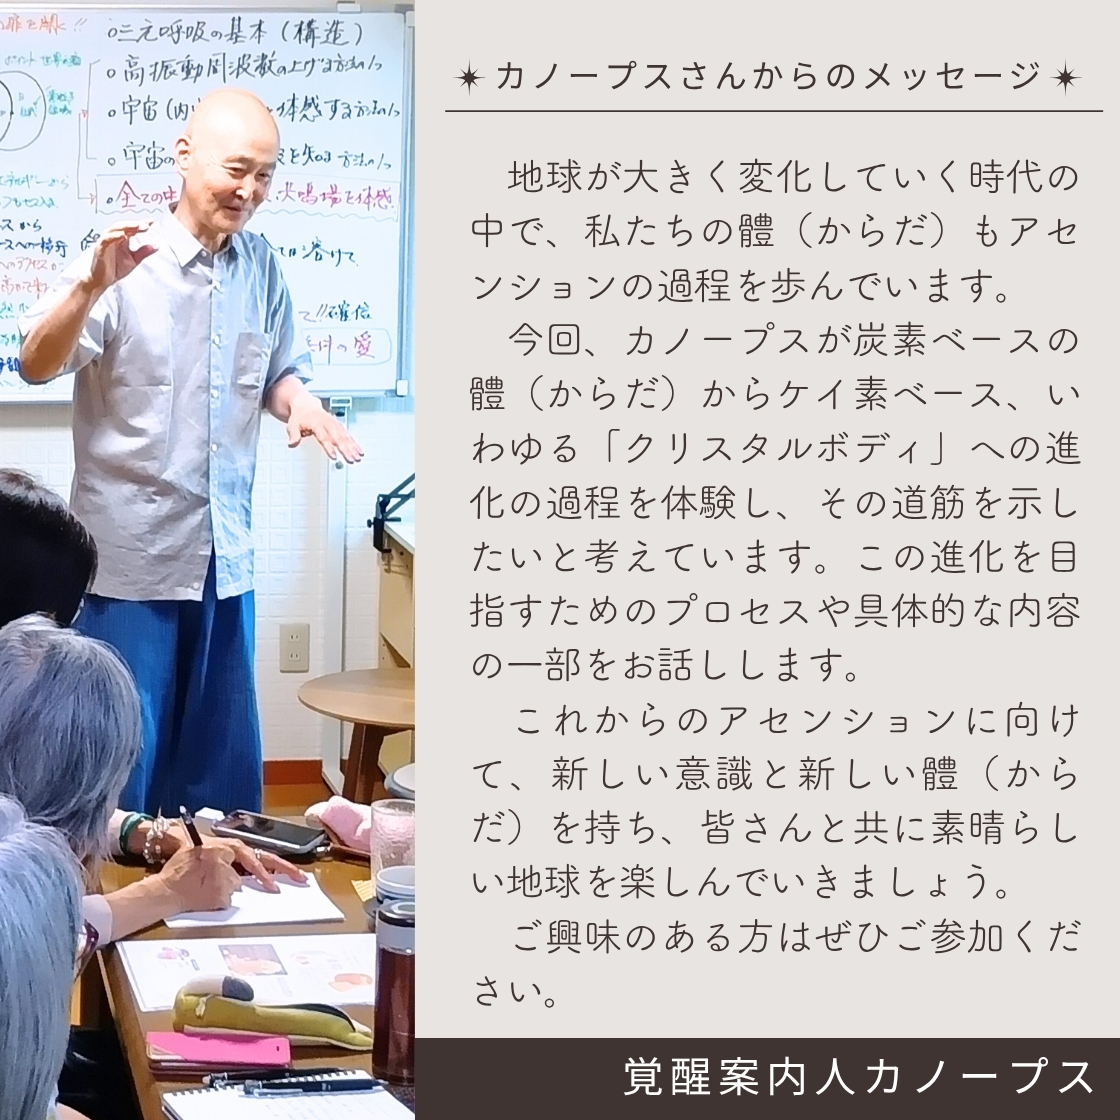 ○三元呼吸の基本(構造)
○高振動周波数の上げる方法の1つ
○宇宙(内
体感する方法の1つ
○宇宙の
を知る方法の1つ
○全ての
共鳴場を体感
溶けて
確信
愛
✴カノープスさんからのメッセージ✴
地球が大きく変化していく時代の
中で、私たちの體(からだ)もアセ
ンションの過程を歩んでいます。
今回、カノープスが炭素ベースの
體(からだ)からケイ素ベース、い
わゆる「クリスタルボディ」への進
化の過程を体験し、その道筋を示し
たいと考えています。この進化を目
指すためのプロセスや具体的な内容
の一部をお話しします。
これからのアセンションに向け
て、新しい意識と新しい體(から
だ)を持ち、皆さんと共に素晴らし
い地球を楽しんでいきましょう。
ご興味のある方はぜひご参加くだ
さい。
覚醒案内人カノープス